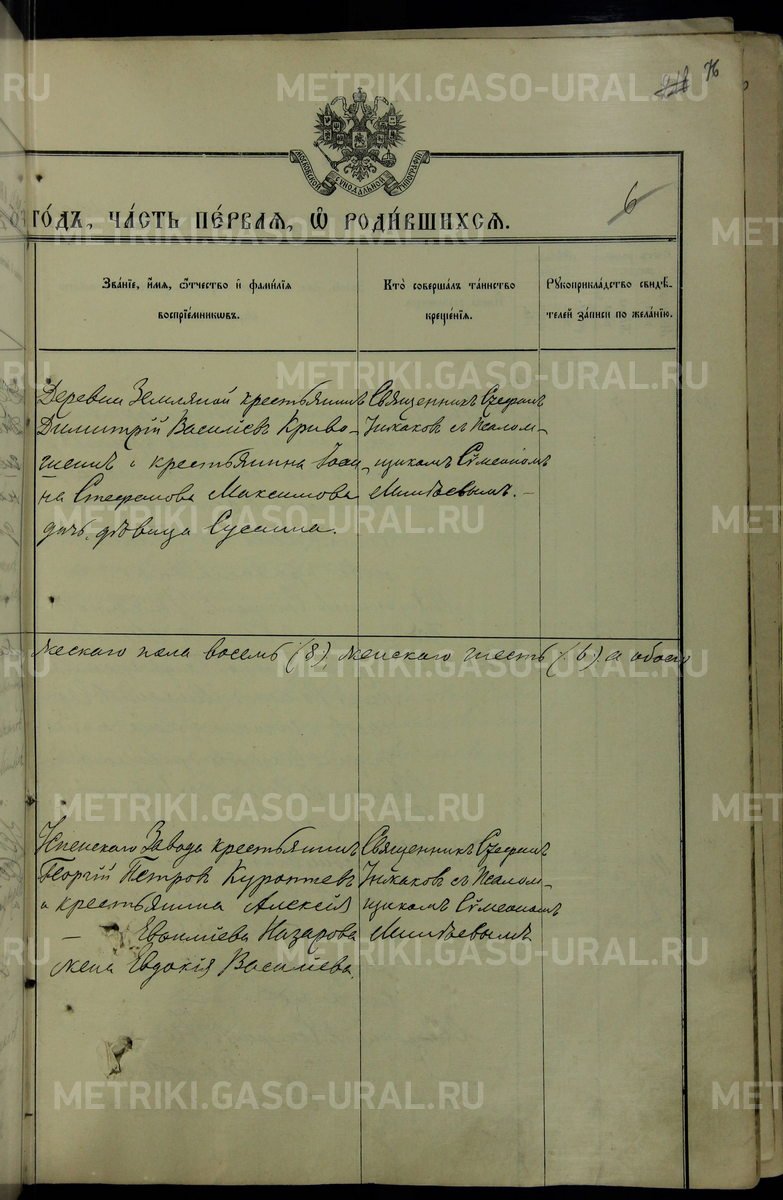 METRIKI.GASO-URAL.RU
76
МОСКОВСКОЙ СѴНОДАЛЬНОЙ ТИПОГРАФІИ
6
ГО́ДЪ, ЧА́СТЬ ПЕ́РВАЯ, Ѡ РОДИ́ВШИХСЯ.
Зва́нїе, и́мя, ѻ҆́тчество и҆ фами́лїя
воспрїе́мникωвъ.
Кто̀ соверша́лъ та́инство
креще́нїя.
Рꙋкоприкла́дство свидѣ́-
телей за́писи по жела́нїю.
Деревни Земляной крестьянинъ
Димитрій Василіевъ Криво-
и крестьянина Іоан-
на Стефанова Максимова
дочь, дѣвица Сусанна.
Священникъ Стефанъ
съ Псалом-
щикомъ Сѵмеономъ
Минѣевымъ. –
жескаго пола восемь (8), женскаго шесть (6), а обоего
Успенскаго Завода крестьянинъ
Георгій Петровъ Куроптевъ
и крестьянина Алексія
– Назарова
жена Евдокія Василіева.
Священникъ Стефанъ
съ Псалом-
щикомъ Сѵмеономъ
Минѣевымъ